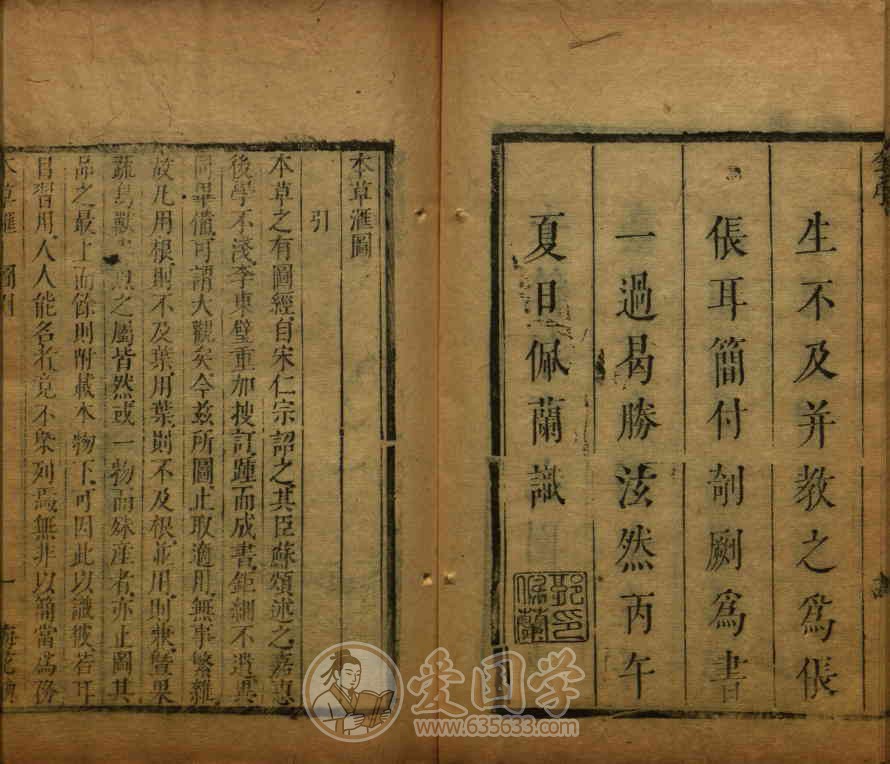 生不及并教之爲倀
倀耳簡付剞劂爲書
一過曷勝泫然丙午
夏日佩蘭識
郭印佩蘭
本草滙圖
引
本草之有圖經自宋仁宗詔之其臣蘇頌述之嘉惠
後學不淺李東璧重加搜訂踵而成書鉅細不遺異
同畢備可謂大觀矣今兹所圖止取適用無事繁雜
故凡用根則不及葉用葉則不及根並用則兼暨果
蔬鳥獸 魚之屬皆然或一物而殊產者亦止圖其
品之最上而餘則附載本物下可因此以識彼若耳
目習用人人能名者竟不槩列焉無非以簡當爲務
本草滙 圖引 一 梅花嶼
爱国学
www.635633.com